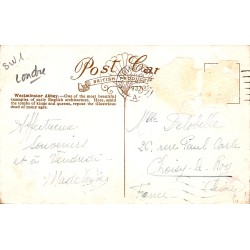 SW1
Londre
Post Car
BRITISH PRODUCTION
Westminster Abbey.—One of the most beautiful
examples of early English architecture. Here, amid
the tombs of kings and queens, repose the illustrious
dead of many ages.
Affectueux
Souvenirs
et à Vendredi
Mlle
20, rue Paul Carle
Choisy-le-Roy
France